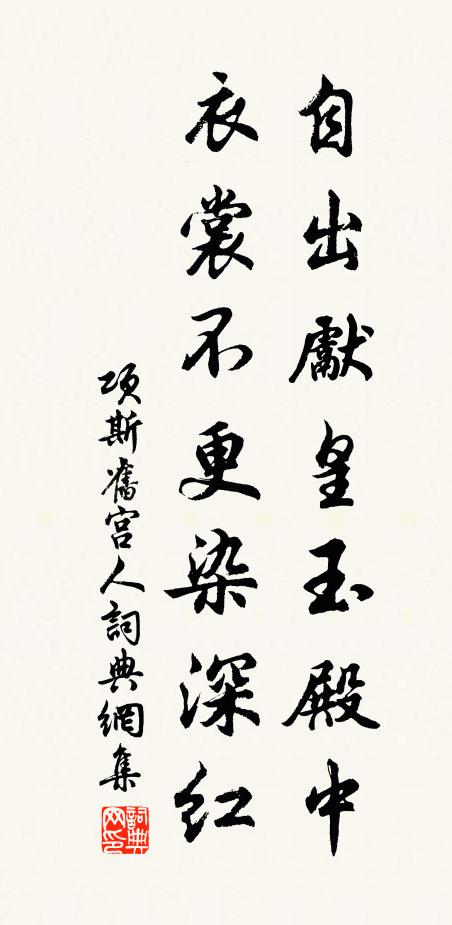 自出獻皇玉殿中
衣裳不更染深紅
項斯舊宮人詞典網集
詞典網印